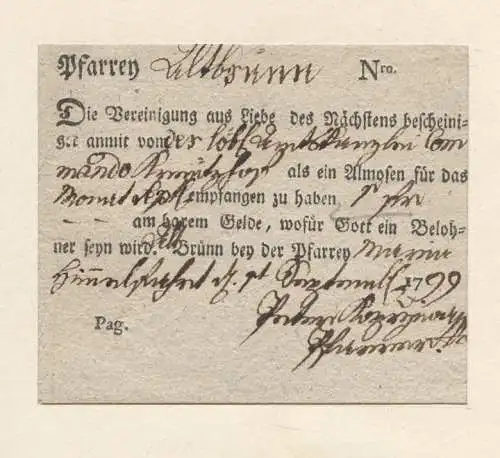 Pfarrey Altbrünn Nro.
Die Vereinigung aus Liebe des Nächstens bescheini-
get anmit von der löbl. Amtskanzley Com
mando als ein Almosen für das
Monat empfangen zu haben 1 fr
am barem Gelde, wofür Gott ein Beloh-
ner seyn wird. Alt Brünn bey der Pfarrey Maria
Himmelfahrt d. 1t Septemb 1799
Pag. Peter
Pfarrer